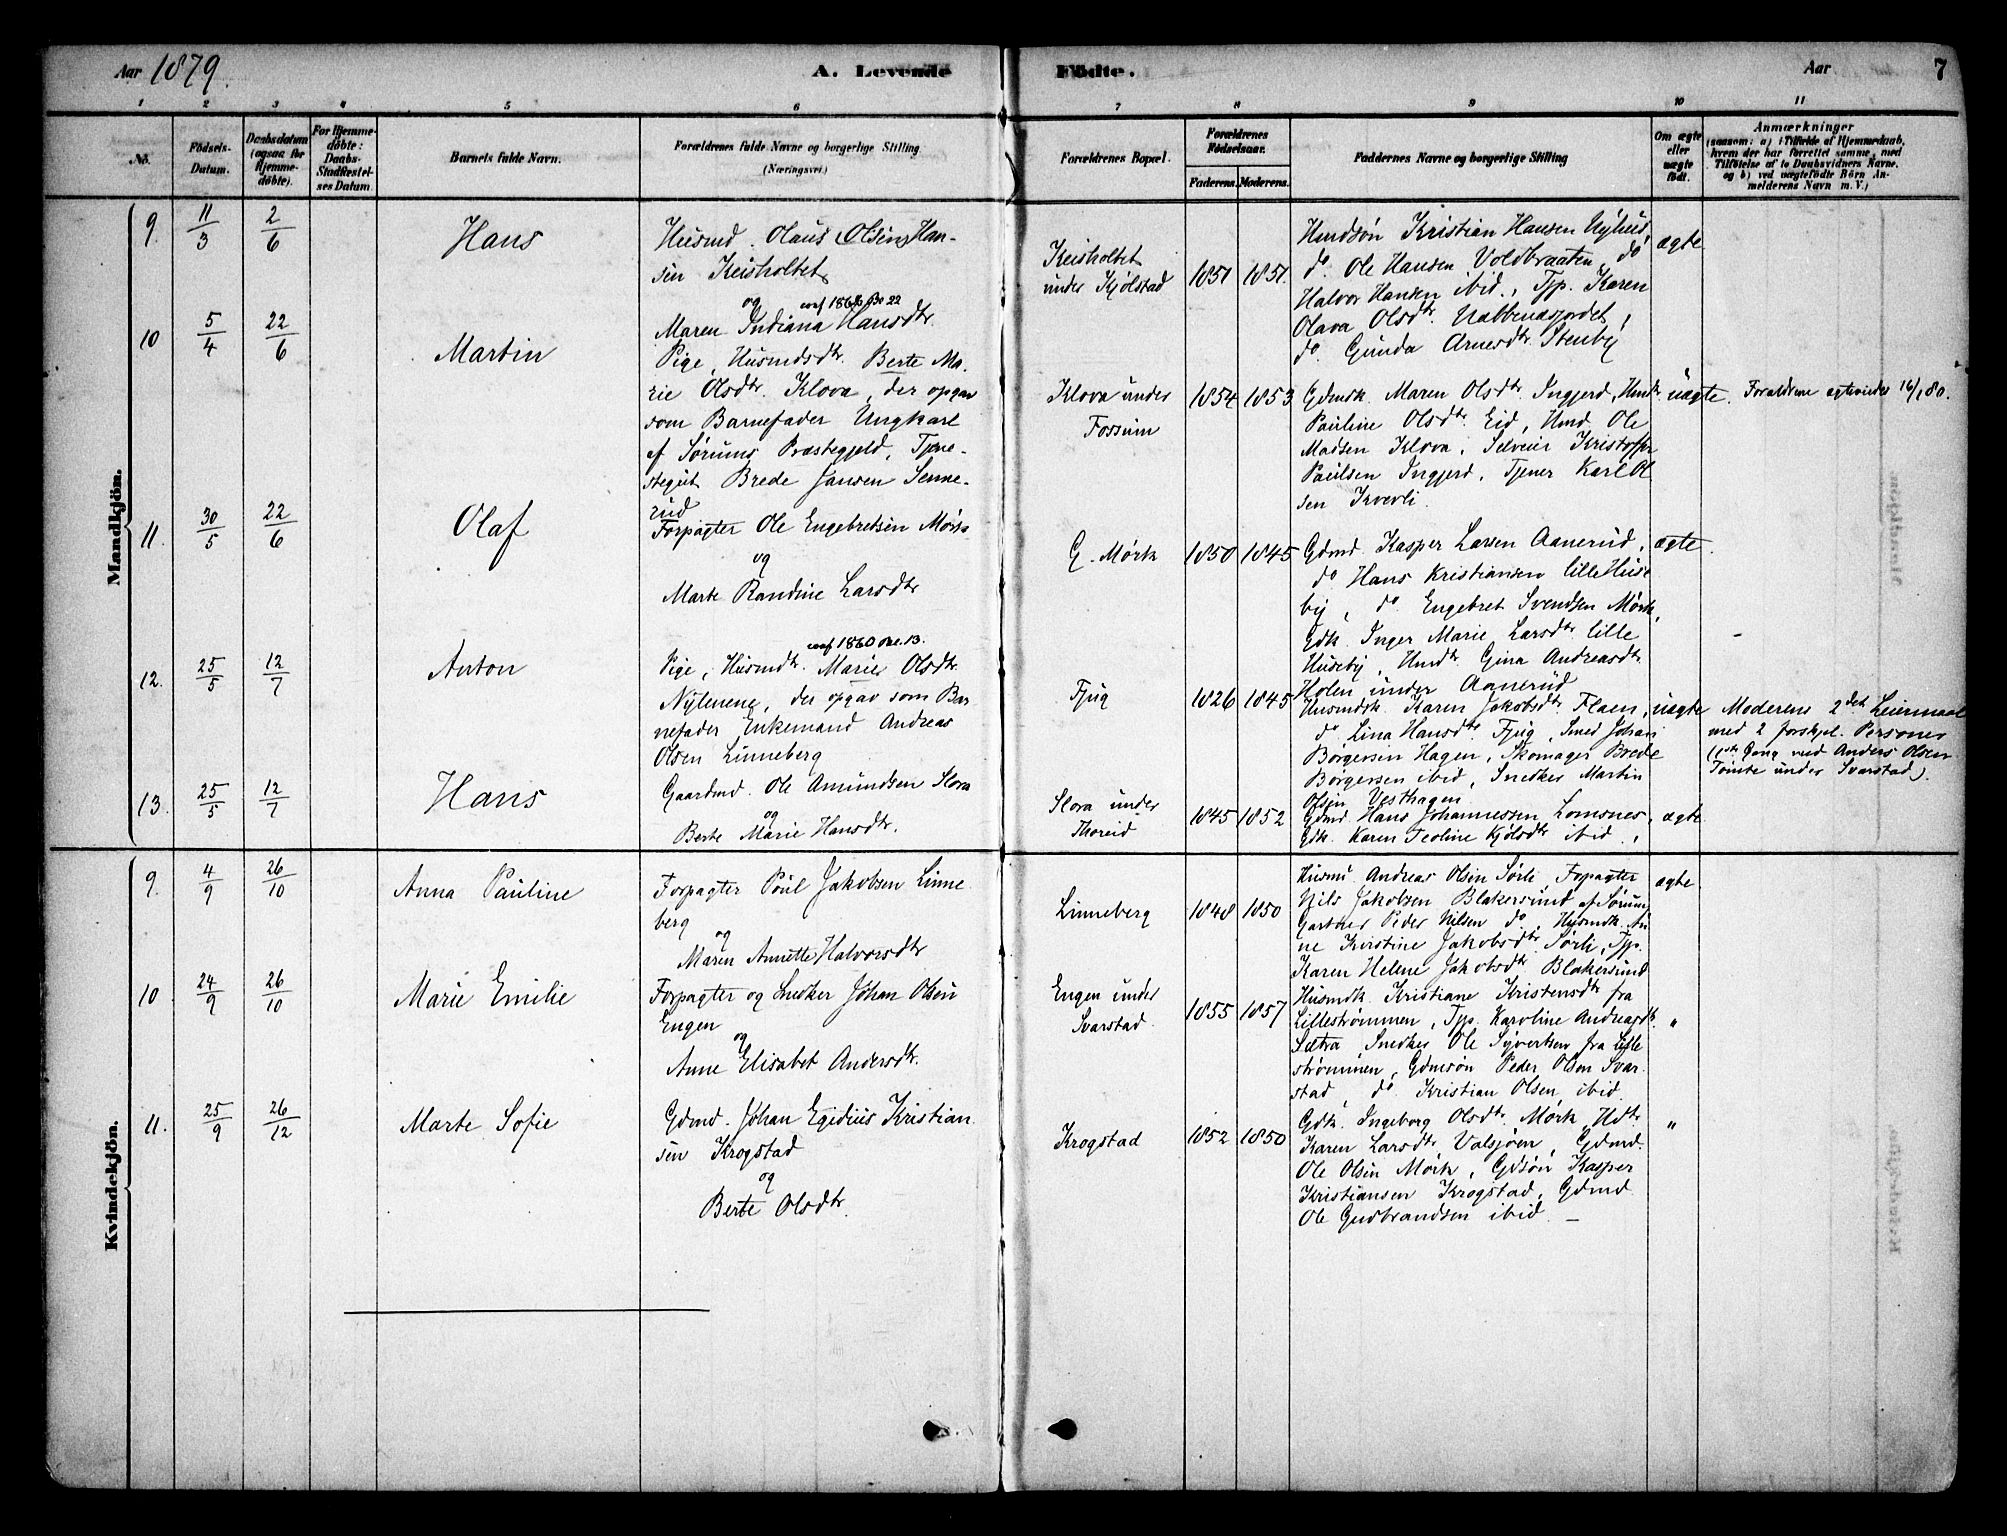 Aar 1879.
A. Levende
Födte.
Aar
7
1 2 3 4 5 6 7 8 9 10 11
No.
Födsels-
Datum.
Daabsdatum
(ogsaa for
Hjemme-
döbte).
For Hjemme-
döbte:
Daabs-
Stadfæstel-
ses Datum.
Barnets fulde Navn.
Forældrenes fulde Navne og borgerlige Stilling.
(Næringsvei.)
Forældrenes Bopæl.
Forældrenes
Födselsaar.
Faderens. Moderens.
Faddernes Navne og borgerlige Stilling
Om ægte
eller
uægte
födt.
Anmærkninger
(saasom: a) i Tilfælde af Hjemmedaab,
hvem der har forrettet samme, med
Tilföielse af to Daabsvidners Navne,
og b) ved uægtefödte Börn An-
melderens Navn m. V.)
Mandkjön.
9. 11/3 2/6
Hans
Husmd. Olaus (Olsen) Han-
sen Keisholtet
og
Maren Indiana Hansdtr.
Keisholtet
under Kjölstad
1851 1851.
Hmdsøn Kristian Hansen Nyhus,
do. Ole Hansen Voldbraaten, do
Halvor Hansen ibid., Tjp. Karen
Olava Olsdtr. Nabbenæsjordet,
do. Gunda Arnesdtr. Stenby
ægte
10 5/4 22/6
Martin
Pige, Husmdsdtr. Berte Ma-
rie Olsdtr. Klova, der opgav
som Barnefader Ungkarl
af Sørums Præstegjeld, Tjene-
stegut Brede Jansen Senne-
rud
Klova under
Fossum
1854 1853
Gdmsk. Maren Olsdtr. Ingjerd, Hmk.
Pauline Olsdtr. Eid, Hmd. Ole
Madsen Klova, Selveier Kristoffer
Paulsen Ingjerd, Tjener Karl Ol
sen Kverli.
uægte.
Forældrene
11. 30/5 22/6
Olaf
Forpagter Ole Engebretsen Mørk
og
Marte Randine Larsdtr
G. Mørk
1850 1845
Gdmd. Kasper Larsen Aanerud,
do Hans Kristiansen lille Huse
by, do. Engebret Svendsen Mørk,
Gdk. Inger Marie Larsdtr. lille
Huseby, Hmdtr. Gina Andreasdtr
Holen under Aanerud
ægte.
12. 25/5 12/7
Anton
conf 1860 No. 13.
Pige, Husmdtr. Marie Olsdtr.
Nylenene, der opgav som Bar
nefader Enkemand Andreas
Olsen Linneberg
Fjug
1826 1845
Husmdsk. Karen Jakobsdtr. Flaen,
do Lina Hansdtr. Fjug, Smed Johan
Börgersen Hagen, Skomager Brede
Börgersen ibid, Snedker Martin
Olsen Vesthagen
uægte
Moderens 2det Leiermaal
med 2 forskjel. Personer
(1ste Gang med Anders Olsen
Tomte under Svarstad).
13. 25/5 12/7
Hans
Gaardmd. Ole Amundsen Slora
og
Berte Marie Hansdtr.
Slora under
Thoreid
1845 1852
Gdmd Hans Johannessen Lomsnes,
Gdk. Karen Teoline Kjölsdtr ibid.
ægte
Kvindekjön.
9. 4/9 26/10
Anna Pauline
Forpagter Poul Jakobsen Linne
berg
og
Maren Annette Halvorsdtr
Linneberg
1848 1850
Husmd. Andreas Olsen Sörli, Fopagter
Nils Jakobsen Blakersund af Sørum,
Gartner Peder Nilsen do, Husmdk. An
ne Kristine Jakobsdtr Sörli, Tjp.
Karen Helene Jakobsdtr Blakersund
ægte.
10 24/9 26/10
Marie Emilie
Forpagter og Snedker Johan Olsen
Engen
og
Anne Elisabet Andersdtr.
Engen under
Svarstad.
1855 1857
Husmdk. Kristiane Kristensdtr fra
Lillestrømmen, Tjp. Karoline Andreasdtr.
Sætra, Snedker Ole Syversen fra Lille
strømmen, Gdmsön Peder Olsen Svar
stad, do. Kristian Olsen, ibid.
"
11. 25/9 26/12
Marte Sofie
Gdmd. Johan Egidius Kristian
sen Krogstad
og
Berte Olsdtr.
Krogstad
1852 1850
Gdk. Ingeborg Olsdtr. Mørk, Hdtr.
Karen Larsdtr. Valsjøen, Gdmd.
Ole Olsen Mørk, Gdsön Kasper
Kristiansen Krogstad, Gdmd
Ole Gudbrandsen ibid. —
"